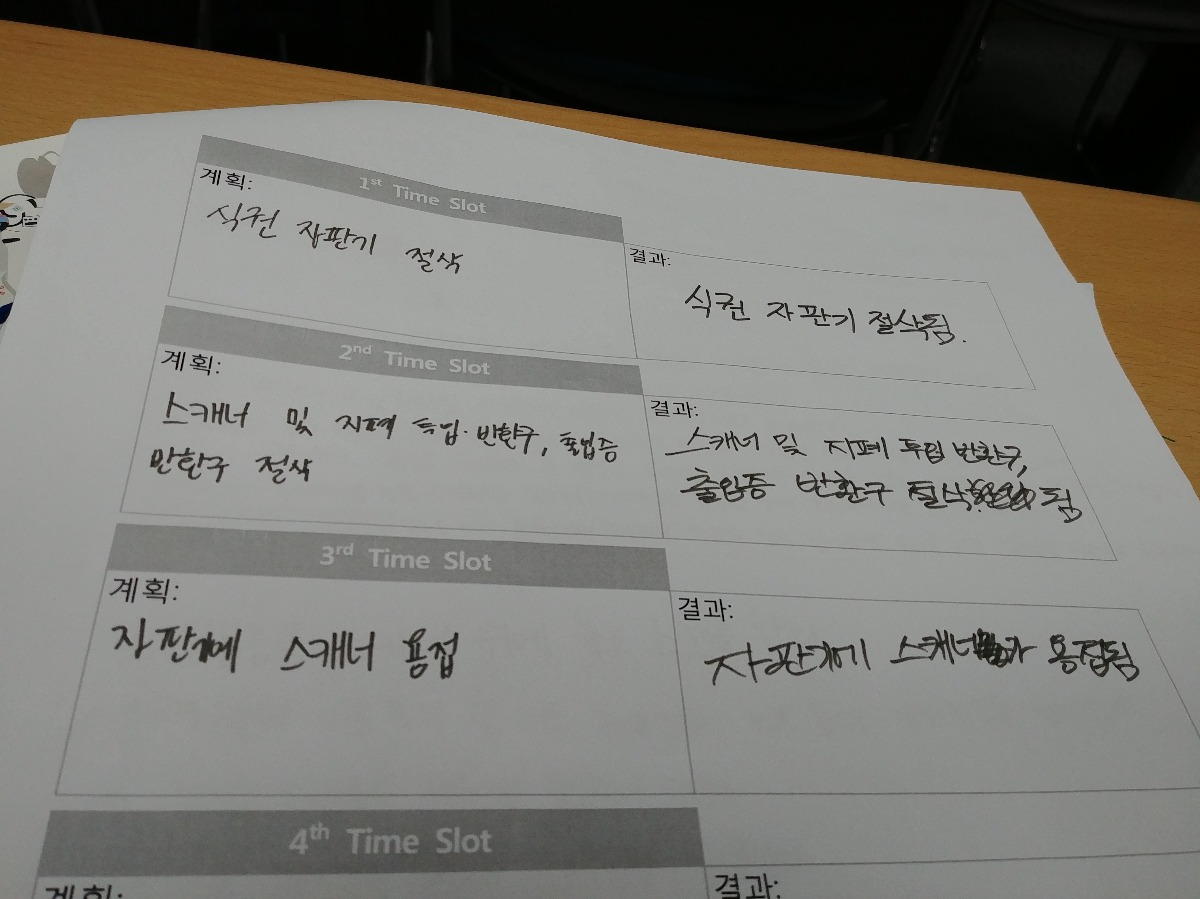 1st Time Slot
계획:
식권 자판기 절삭
결과:
식권 자판기 절삭됨.
2nd Time Slot
계획:
스캐너 및 지폐 투입·반환구, 출입증
반환구 절삭
결과:
스캐너 및 지폐 투입 반환구,
출입증 반환구 절삭 됨
3rd Time Slot
계획:
자판기에 스캐너 용접
결과:
자판기에 스캐너가 용접됨
4th Time Slot
계획:
결과: